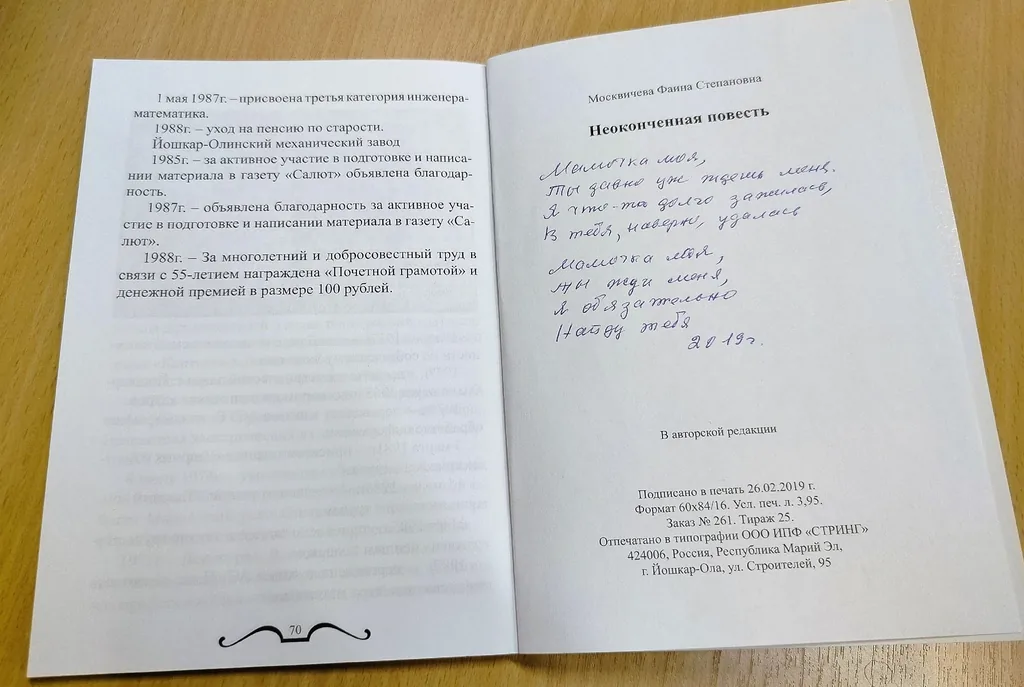 1 мая 1987г. – присвоена третья категория инженера-
математика.
1988г. – уход на пенсию по старости.
Йошкар-Олинский механический завод
1985г. – за активное участие в подготовке и написа-
нии материала в газету «Салют» объявлена благодар-
ность.
1987г. – объявлена благодарность за активное уча-
стие в подготовке и написании материала в газету «Са-
лют».
1988г. – За многолетний и добросовестный труд в
связи с 55-летием награждена «Почетной грамотой» и
денежной премией в размере 100 рублей.
70
Москвичева Фаина Степановиа
Неоконченная повесть
Мамочка моя,
Ты давно уж ждешь меня.
Я что-то долго зажилась,
В тебя, наверно, удалась
Мамочка моя,
ты жди меня,
Я обязательно
Найду тебя
2019г.
В авторской редакции
Подписано в печать 26.02.2019 г.
Формат 60х84/16. Усл. печ. л. 3,95.
Заказ № 261. Тираж 25.
Отпечатано в типографии ООО ИПФ «СТРИНГ»
424006, Россия, Республика Марий Эл,
г. Йошкар-Ола, ул. Строителей, 95